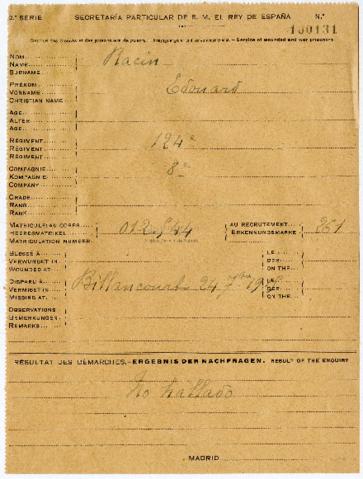 2.ª SERIE SECRETARÍA PARTICULAR DE S. M. EL REY DE ESPAÑA N.º
100131
Service des blessés et des prisonniers de guerre. - - Service of wounded and war prisoners
NOM
NAME
SURNAME
Racin
PRÉNOM
VORNAME
CHRISTIAN NAME
Edouard
AGE
ALTER
AGE
RÉGIMENT
REGIMENT
REGIMENT
124e
COMPAGNIE
KOMPAGNIE
COMPANY
8e
GRADE
RANG
RANK
MATRICULE AS CORPS
HEERESMATRIKEL
MATRICULATION NUMBER
AU RECRUTEMENT
ERKENNUNGSMARKE
BLESSÉ À
VERWUNDET IN
WOUNDED AT
LE
DER
ON THE
DISPARU À
VERMISST IN
MISSING AT
Billancourt 24 7bre
LE
DER
ON THE
OBSERVATIONS
BEMERKUNGEN
REMARKS
RÉSULTAT DES DÉMARCHES.-ERGEBNIS DER NACHFRAGEN. RESULT OF THE ENQUIRY
No hallado
MADRID